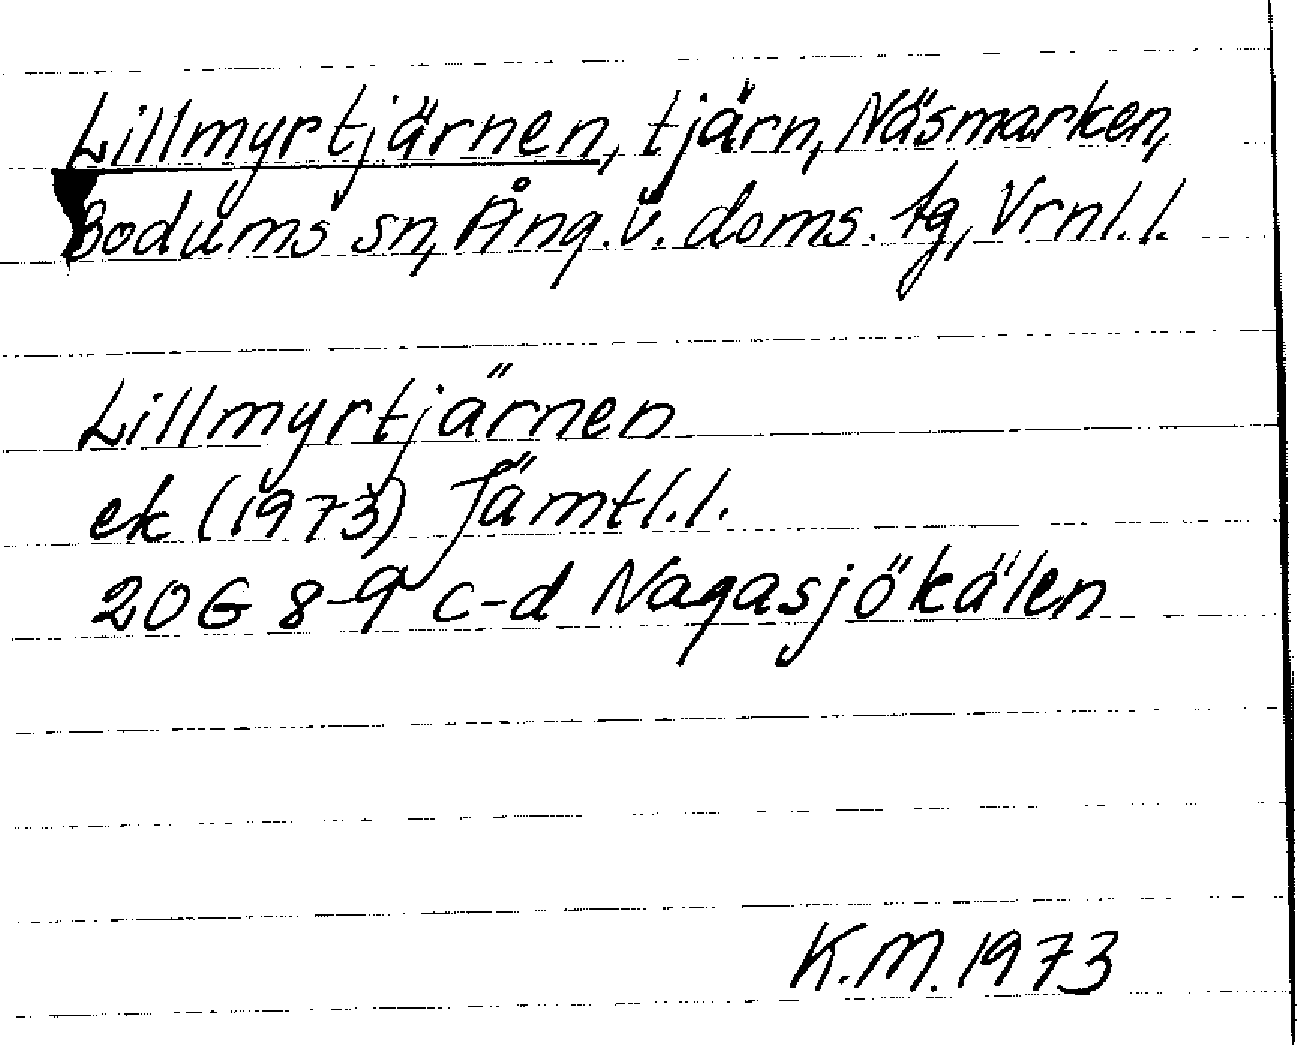 Lillmyrtjärnen, tjärn, Näsmarken,
Bodums sn, Ång. v. doms. tg, Vrnl.l.
Lillmyrtjärnen
ek (1973) Jämtl.l.
20G 8-9 c-d Nagasjökälen
K.M. 1973